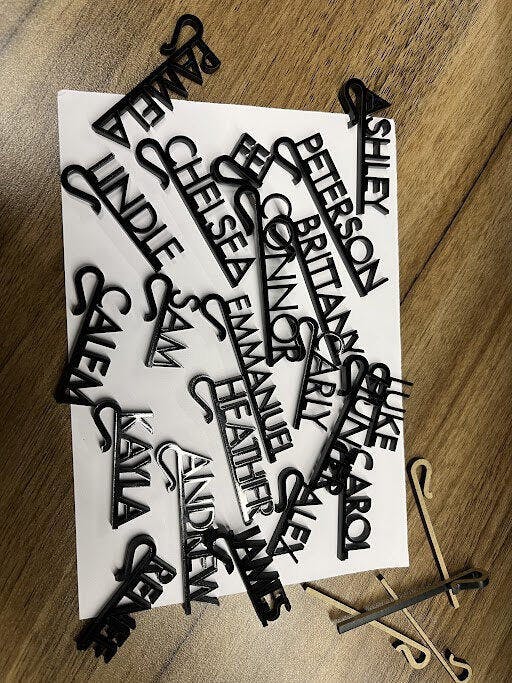 PAMELA
ASHLEY
CHELSEA
PETERSON
CONNOR
SAM
EMMANUEL
CARLY
LUKE
HEATHER
CAROL
KAYLA
ANDREW
ALEX
JAMES
RENEE